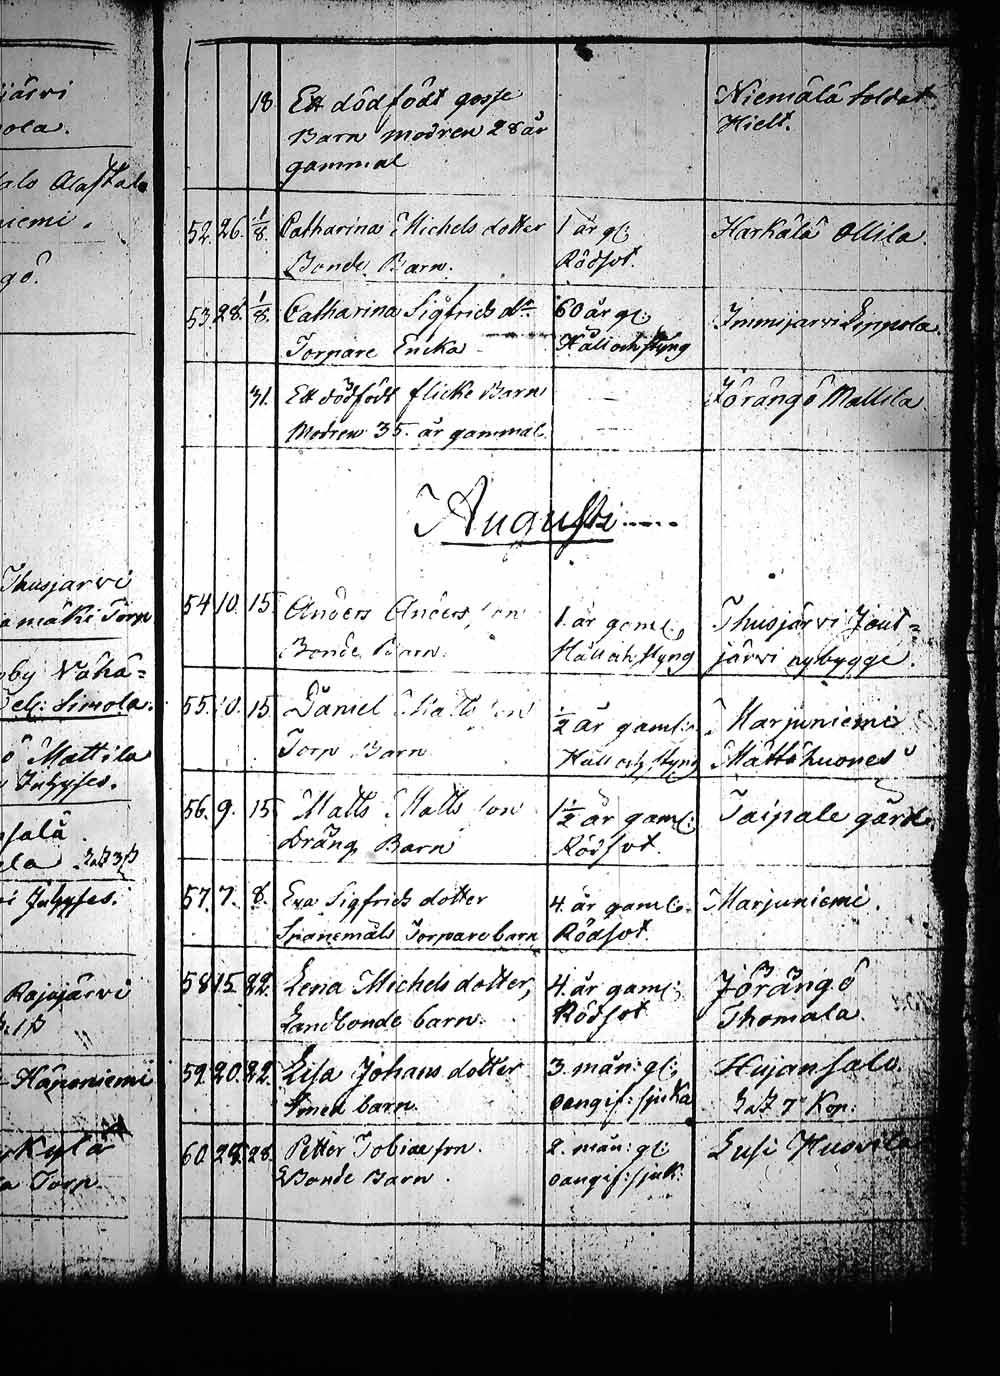 järvi
ola.
niemi.
gö.
Thusjarvi
amäki Torp
by Vähä=
Simola.
ö Mattila
Juhyses.
sala
ela
Juhyses.
Rajujärvi
Häponiemi
Kylä
a Torp
18 Ett dödfödt gosse Niemälä Soldat
Barn modren 28 år Hielt.
gammal
52. 26. 1/8. Catharina Michels dotter 1 år gl: Harkälä Ollila
Bonde Barn. Rödsot.
53. 28. 1/8. Catharina Sigfrids dr 60 år gl: Immijarvi Seppola.
Torpare Encka Håll och styng
31. Ett dödfödt flicke Barn Jörängö Mattila
Modren 35. år gammal.
Augusti
54 10. 15 Anders Anders son 1. år gaml: Thusjärvi Jout=
Bonde Barn. Håll och styng järvi nybygge.
55. 10. 15 Daniel Matts son 1/2 år gaml: Marjuniemi
Torp Barn Håll och styng Mattähuones
56. 9. 15 Matts Matts son 1 1/2 år gaml: Taipale gård.
Dräng Barn Rödsot.
57. 7. 8. Eva Sigfrids dotter 4. år gaml: Marjuniemi.
Torpare barn Rödsot.
58 15. 22. Lena Michels dotter, 4. år gaml: Jörängö
Landbonde barn. Rödsot Thomala.
59. 20. 22. Lisa Johans dotter 3. mån: gl: Hujansalo.
barn. oangif: sjuka 7 Kop:
60. 28. 28. Petter Tobiae son. 2. mån: gl: Lusi Huovila
Bonde Barn. oangif: sjuk: